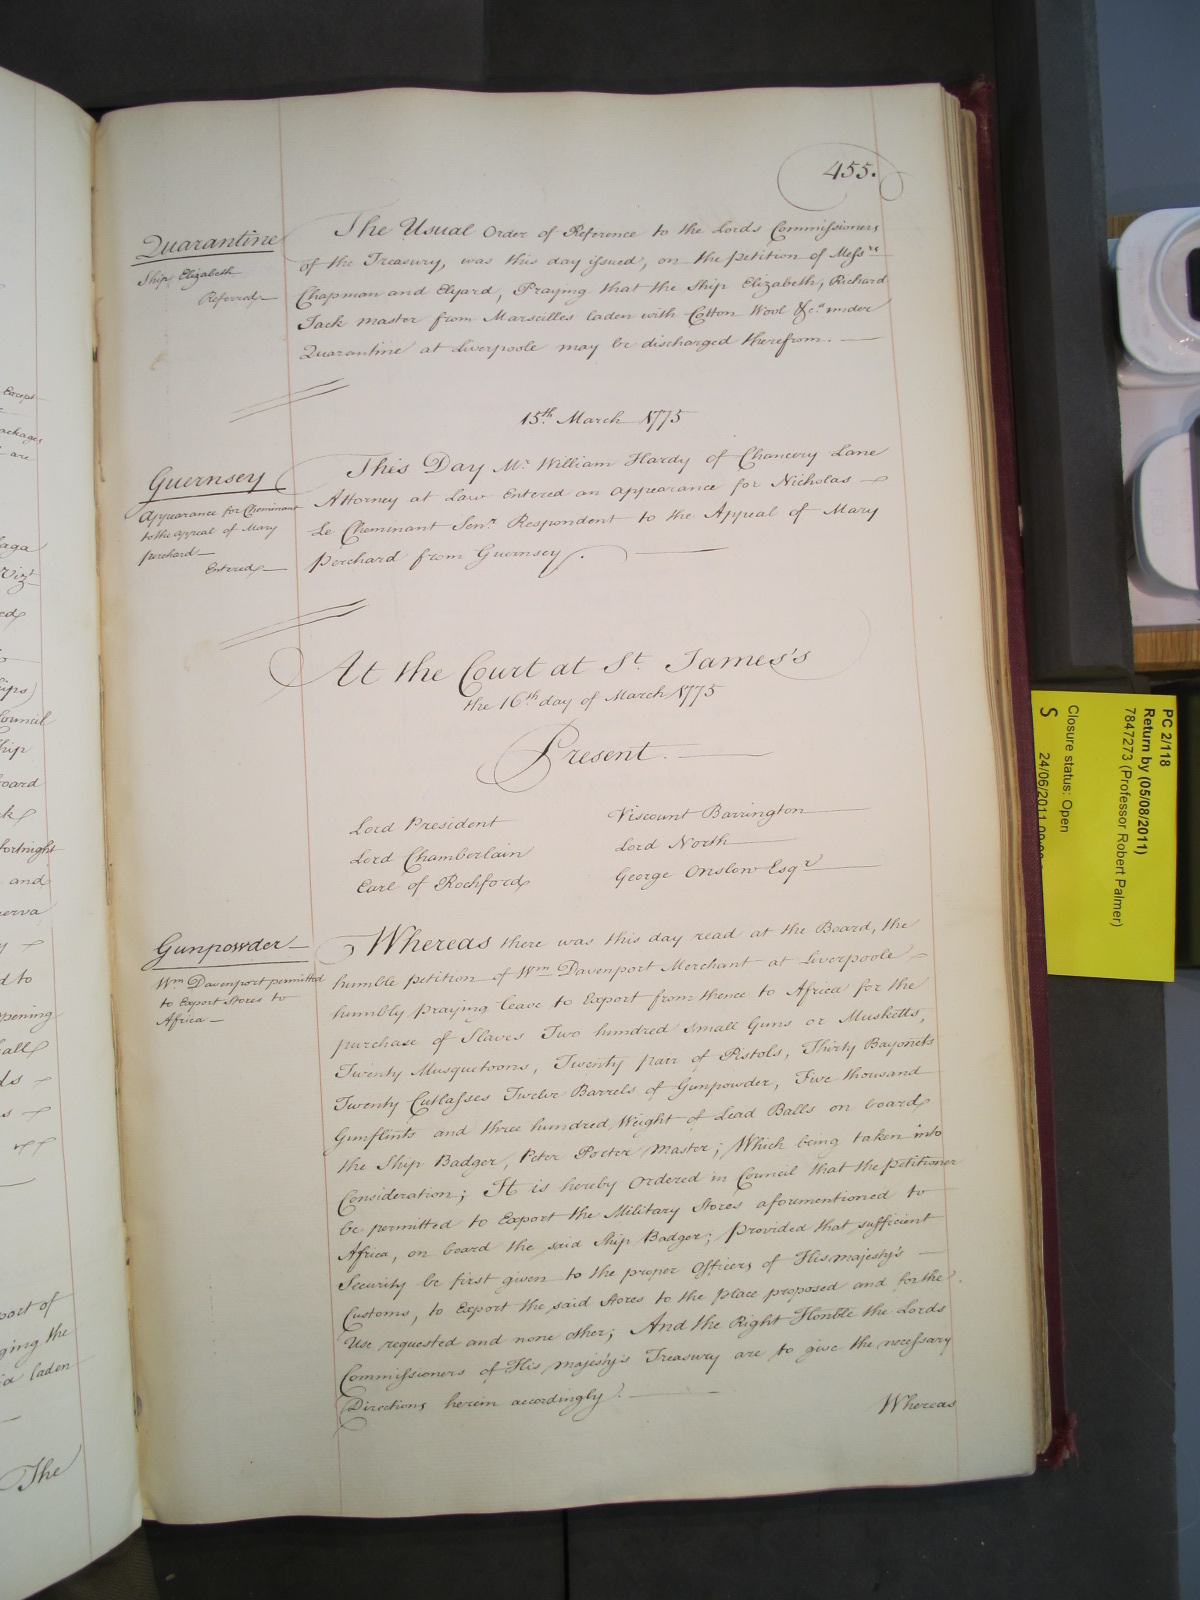 455.
Quarantine
Ship Elizabeth
Referred
The Usual Order of Reference to the Lords Commissioners
of the Treasury, was this day issued, on the petition of Messrs
Chapman and Elyard, Praying that the Ship Elizabeth, Richard
Jack master from Marseilles laden with Cotton Wool &c.a under
Quarantine at Liverpoole may be discharged therefrom.
15th March 1775
Guernsey
Appearance for Cheminant
to the appeal of Mary
perchard
Entered
This Day Mr. William Hardy of Chancery Lane
Attorney at Law Entered an appearance for Nicholas
Le Cheminant Senr. Respondent to the Appeal of Mary
Perchard from Guernsey.
At the Court at St. James's
the 16th day of March 1775
Present.
Lord President
Lord Chamberlain
Earl of Rochford
Viscount Barrington
Lord North
George Onslow Esqr
Gunpowder
Wm Davenport permitted
to Export Stores to
Africa
Whereas there was this day read at the Board, the
humble petition of Wm Davenport Merchant at Liverpoole
humbly praying leave to Export from thence to Africa for the
purchase of Slaves Two hundred small Guns or Musketts,
Twenty Musquetoons, Twenty pair of Pistols, Thirty Bayonets
Twenty Cutlasses Twelve Barrels of Gunpowder, Five thousand
Gunflints and three hundred Weight of Lead Balls on board
the Ship Badger, Peter Potter Master; Which being taken into
Consideration; It is hereby Ordered in Council that the petitioner
be permitted to Export the Military Stores aforementioned to
Africa, on board the said Ship Badger; provided that sufficient
Security be first given to the proper Officers of His majesty's
Customs, to Export the said Stores to the place proposed and for the
Use requested and none other; And the Right Honble the Lords
Commissioners of His majesty's Treasury are to give the necessary
Directions herein accordingly.
Whereas
Except
ackages
are
aga
Vizt
ips)
Council
hip
oard
fortnight
and
erva
d to
pening
all
port of
ging the
laden
The
PC 2/118
Return by (05/08/2011)
7847273 (Professor Robert Palmer)
Closure status: Open
S
24/06/2011